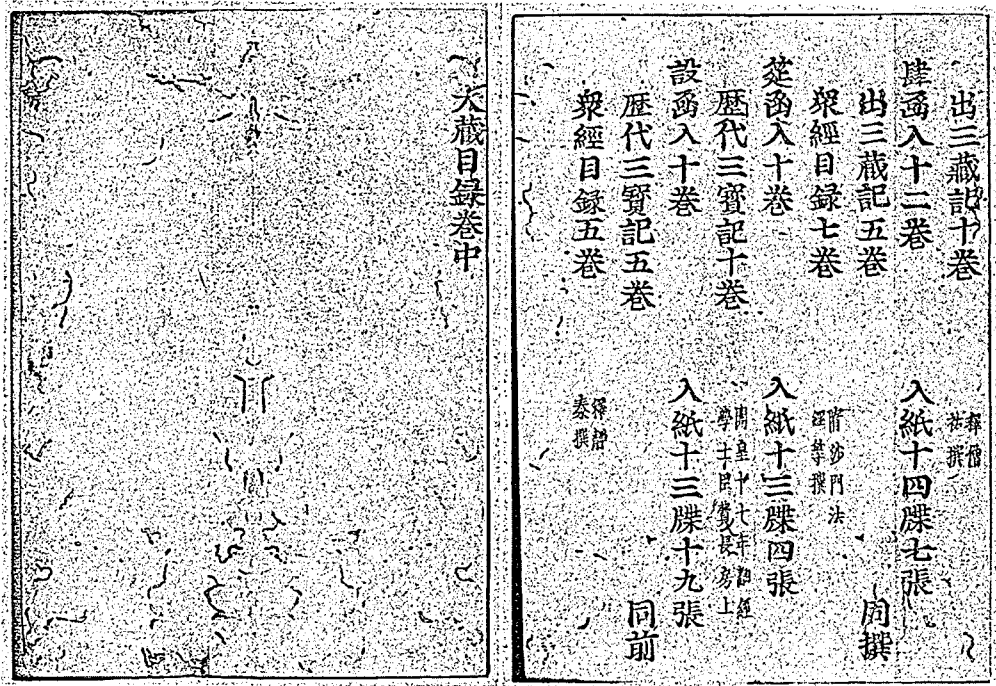 出三藏記十卷 釋僧祐撰
肆函入十二卷 入紙十四牒七張
出三藏記五卷 同撰
衆經目録七卷 隋沙門法經等撰
筵函入十卷 入紙十三牒四張
歴代三寳記十卷 開皇十七年翻經學士臣費長房上
設函入十卷 入紙十三牒十九張
歴代三寳記五卷 同前
衆經目録五卷 釋静泰撰
大藏目録卷中